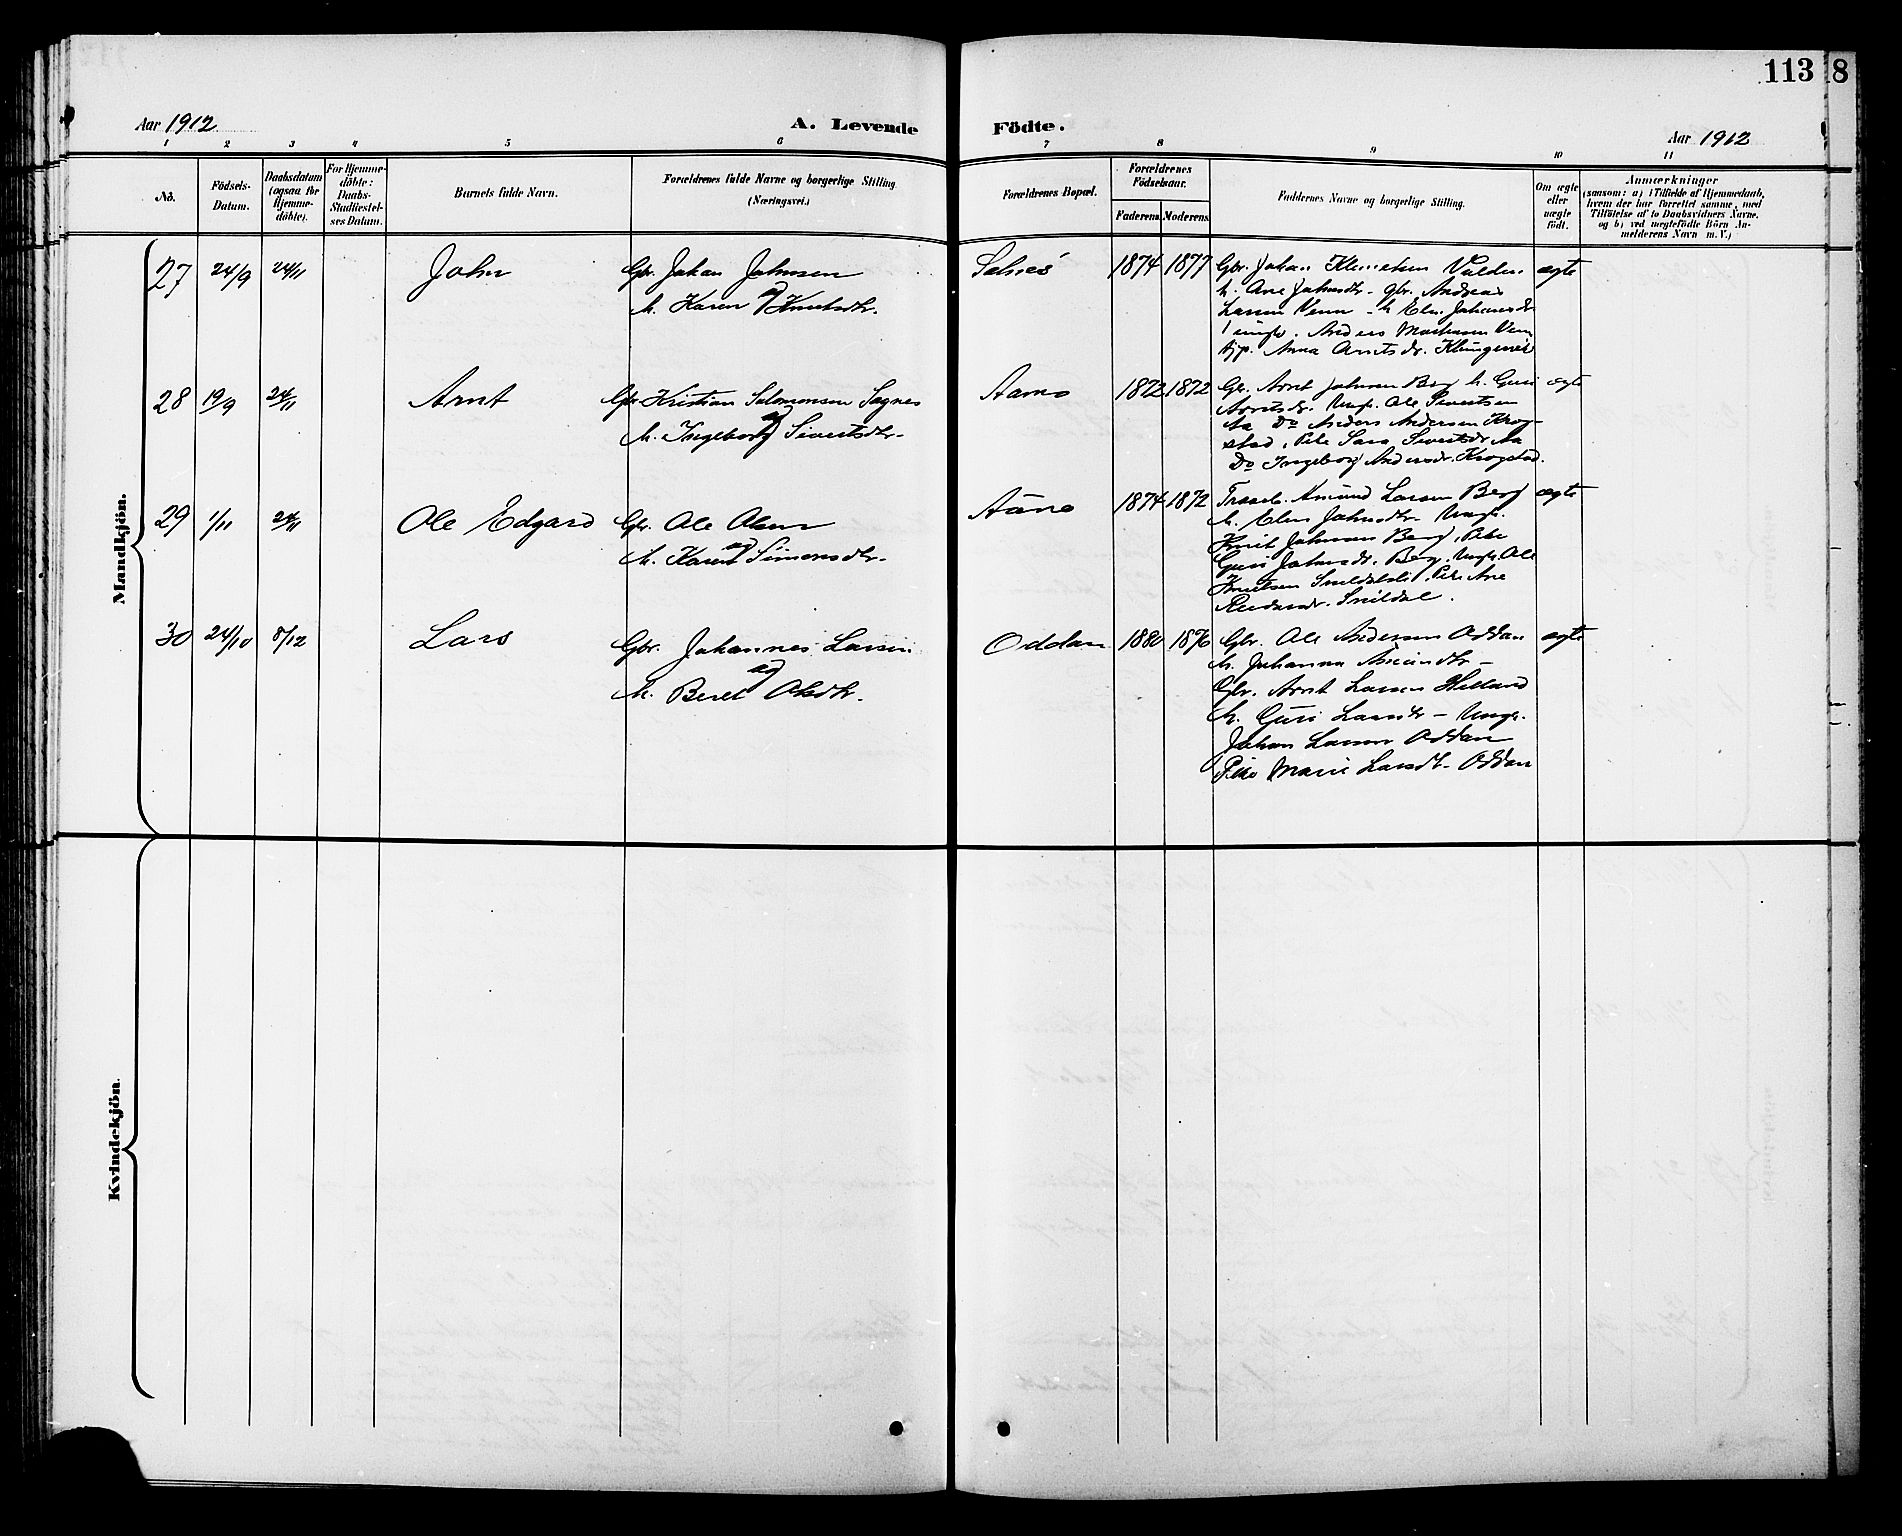 113
8
Aar 1912
A. Levende
Födte.
Aar 1912
1 2 3 4 5 6 7 8 9 10 11
No.
Födsels-
Datum.
Daabsdatum
(ogsaa for
Hjemme-
döbte).
For Hjemme-
döbte:
Daabs-
Stadfæstel-
ses Datum.
Barnets fulde Navn.
Forældrenes fulde Navne og borgerlige Stilling
(Næringsvei.)
Forældrenes Bopæl.
Forældrenes
Födselsaar.
Faderens.
Moderens.
Faddernes Navne og borgerlige Stilling.
Om ægte
eller
uægte
födt.
Anmærkninger
(saasom: a) i Tilfælde af Hjemmedaab,
hvem der har forrettet samme, med
Tilföielse af to Daabsvidners Navne,
og b) ved uægtefödte Börn An-
melderens Navn m. V.)
Mandkjön.
27 24/9 24/11 John
Gbr. Johan Johnsen
og
h. Karen Knutsdtr.
Selnes
1874 1877
Gbr. Johan
h. Ane Johnsdtr. gbr. Andreas
Larsen Venn h.
Anders
Anna Arntsdr.
ægte
28 19/9 24/11 Arnt
Gbr. Kristian Salomonsen Sognes
og
h. Ingeborg Sivertsdtr.
Aamo
1872 1872
Gbr. Arnt Johnsen Berg h. Guri
Arntsdr. Ungk. Ole Sivertsen
Aa Do Anders Andersen Krog-
stad, Pike Sara Sivertsdr Aa
Do Ingeborg Andersdr. Krogstad.
ægte
29 1/11 24/11 Ole Edgard
Gbr. Ole Olsen
og
h. Karen Simonsdtr.
Aamo
1874 1872
Amund Larsen Berg
h. Elen Johnsdtr. Ungk.
Knut Johnsen Berg, Pike
Guri Johnsdr. Berg, Ungk. Ole
Knutsen Snildalsli, Pike Ane
Snildal.
ægte
30 24/10 8/12 Lars
Gbr. Johannes Larsen
og
h. Beret Olsdtr.
Oddan
1880 1876
Gbr. Ole Andersen Oddan
h. Johanna Amundtr –
Gbr. Arnt Larsen
h. Guri Larsdtr – Ungk.
Johan Larsen Oddan
Pike Marie Larsdt. Oddan
ægte
Kvindekjön.